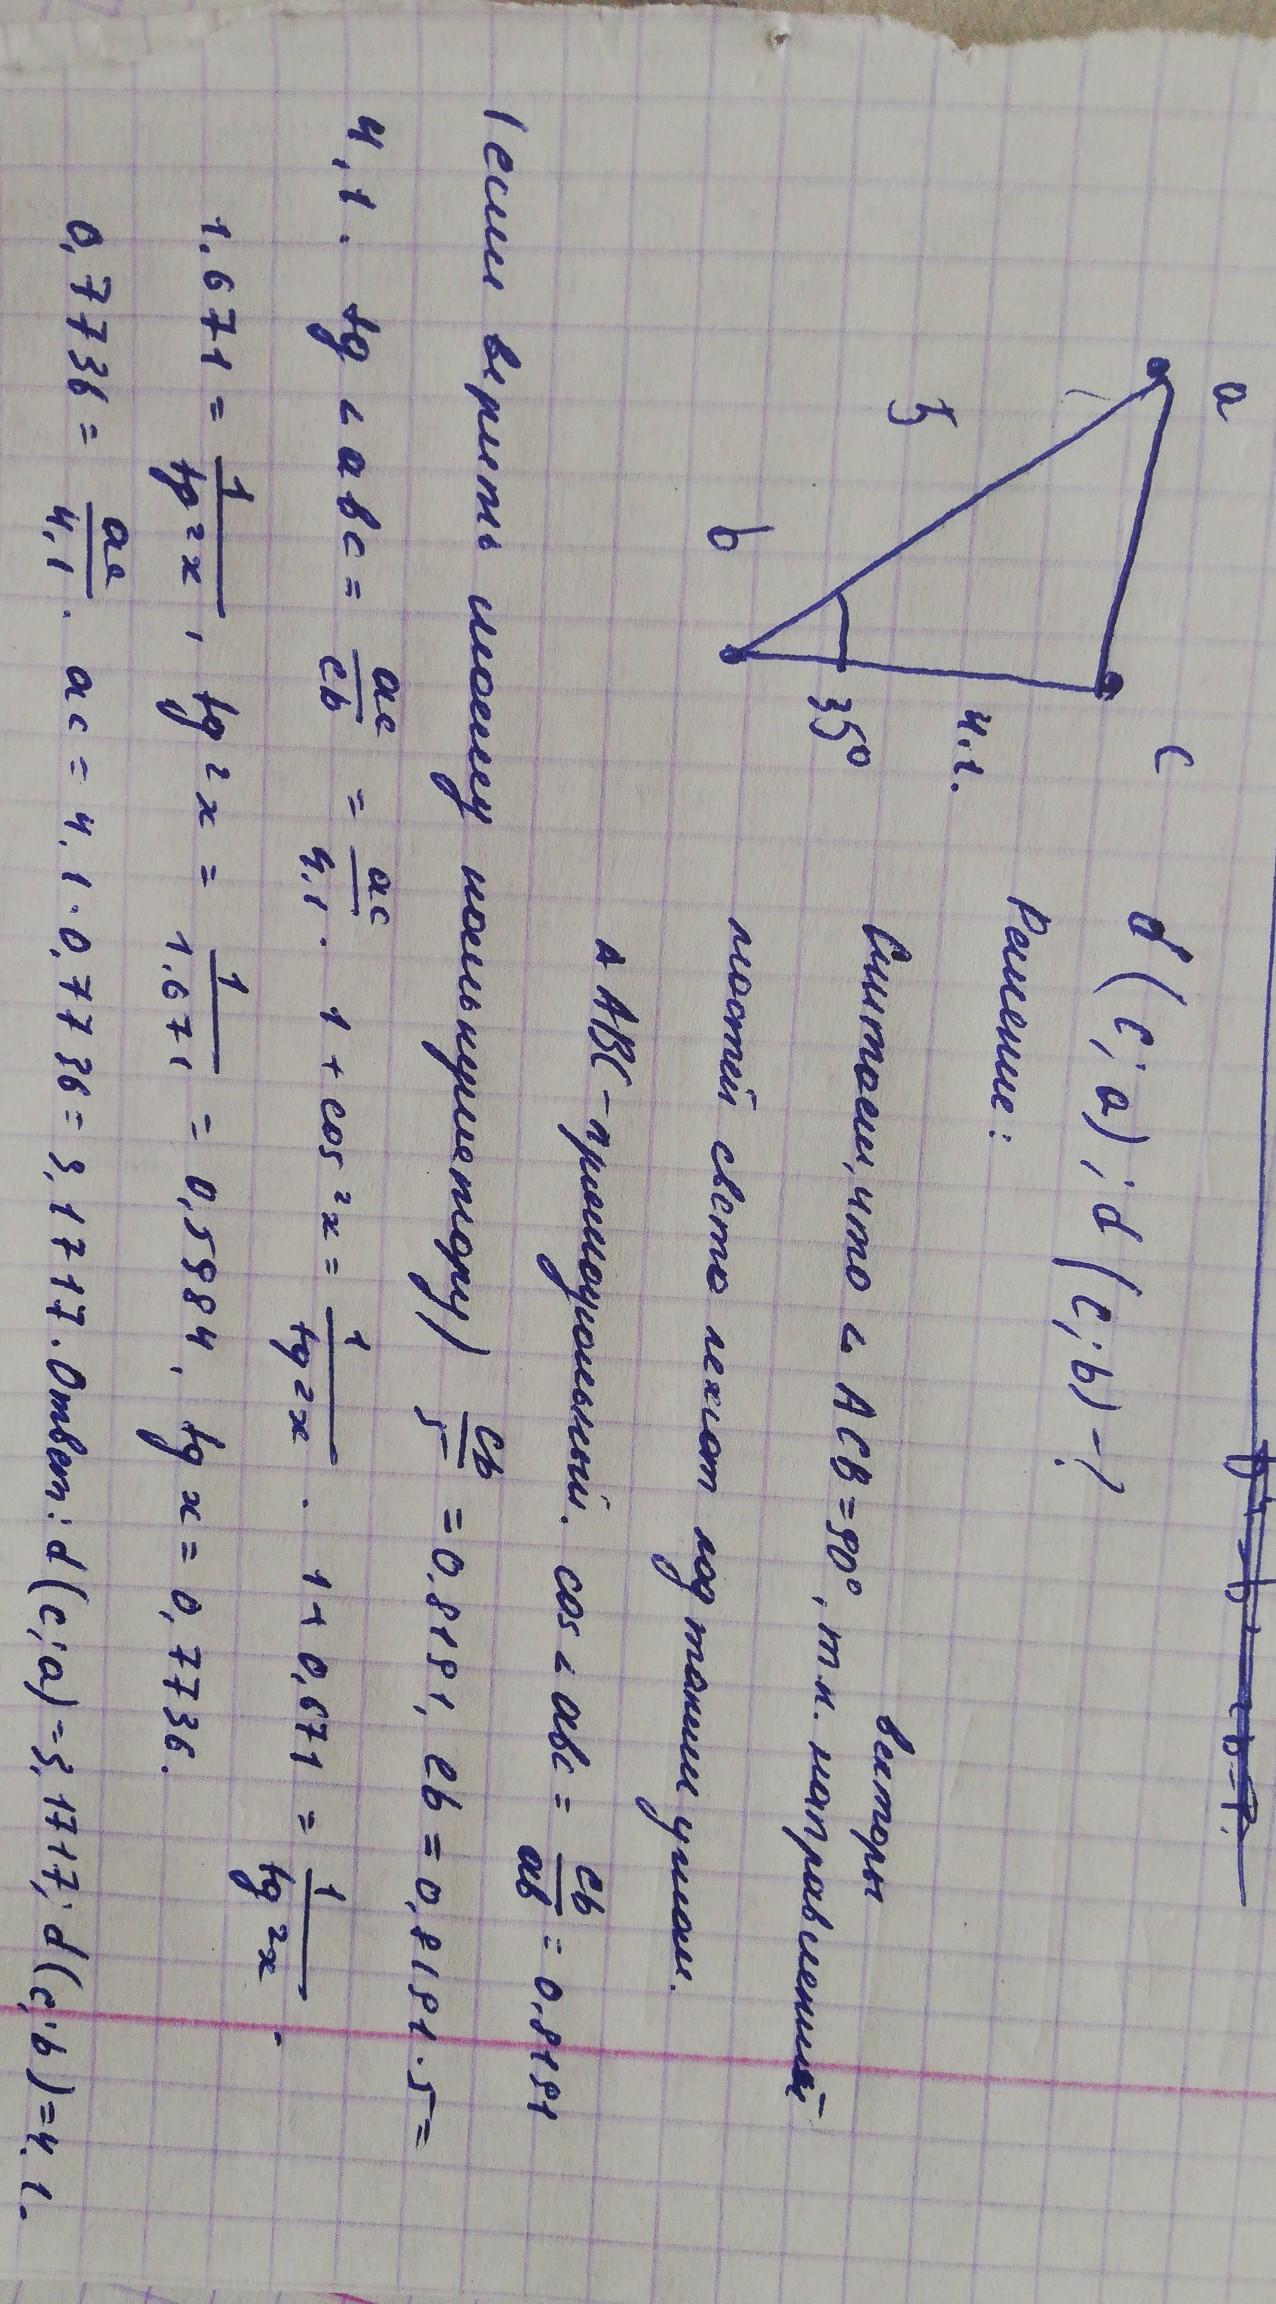 a
c
5
4.1.
b
35°
d(c; a); d(c; b) - ?
Решение:
векторы
Считаем, что ∠ ACB = 90°, т.к. направлений
частей света лежат под таким углом.
△ ABC - прямоугольный. cos ∠ abc = cb/ab = 0,8191
(если верить моему калькулятору) cb/5 = 0,8191, cb = 0,8191 · 5 =
4,1. tg ∠ abc = ac/cb = ac/4,1. 1 + cos²x = 1/tg²x. 1 + 0,671 = 1/tg²x.
1.671 = 1/tg²x, tg²x = 1/1.671 = 0,5984, tg x = 0,7736.
0,7736 = ac/4,1. ac = 4,1 · 0,7736 = 3,1717. Ответ: d(c; a) = 3,1717; d(c; b) = 4,1.